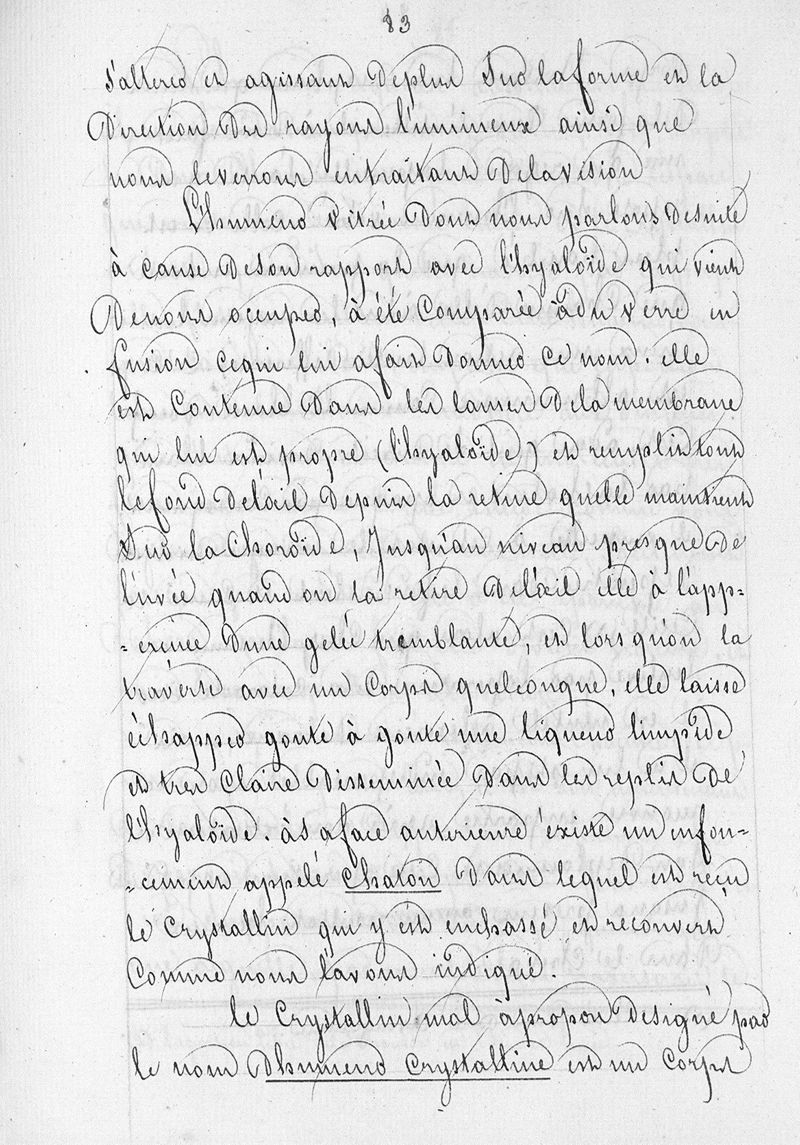 83
s'alterer et agissant deplus sur la forme et la
Direction des rayons lumineux ainsi que
nous leverrons entraitant delavision
L'humeur vitrée dont nous parlons desuite
à cause deson rapport avec l'hyaloïde qui vient
Denous occuper, à été comparée àdu verre en
fusion cequi lui afait donner ce nom. elle
est contenue dans les lames delamembrane
qui lui est propre (l'hyaloïde) et remplit tout
lefond del'œil depuis la retine quelle maintient
sur la choroïde, jusqu'au niveau presque de
l'uvée quand on la retire del'œil elle à l'app-
-arence dune gelée tremblante, et lorsqu'on la
traverse avec un corps quelconque, elle laisse
échapper goute à goute une liqueur limpide
et tres claire disseminée dans les replis de
l'hyaloïde. àsa face anterieure existe un enfon-
-cement appelé chaton dans lequel est reçu
le crystallin qui y est enchassé et recouvert
Comme nous l'avons indiqué.
le crystallin mal àpropos designé par
le nom d'humeur crystalline est un corps